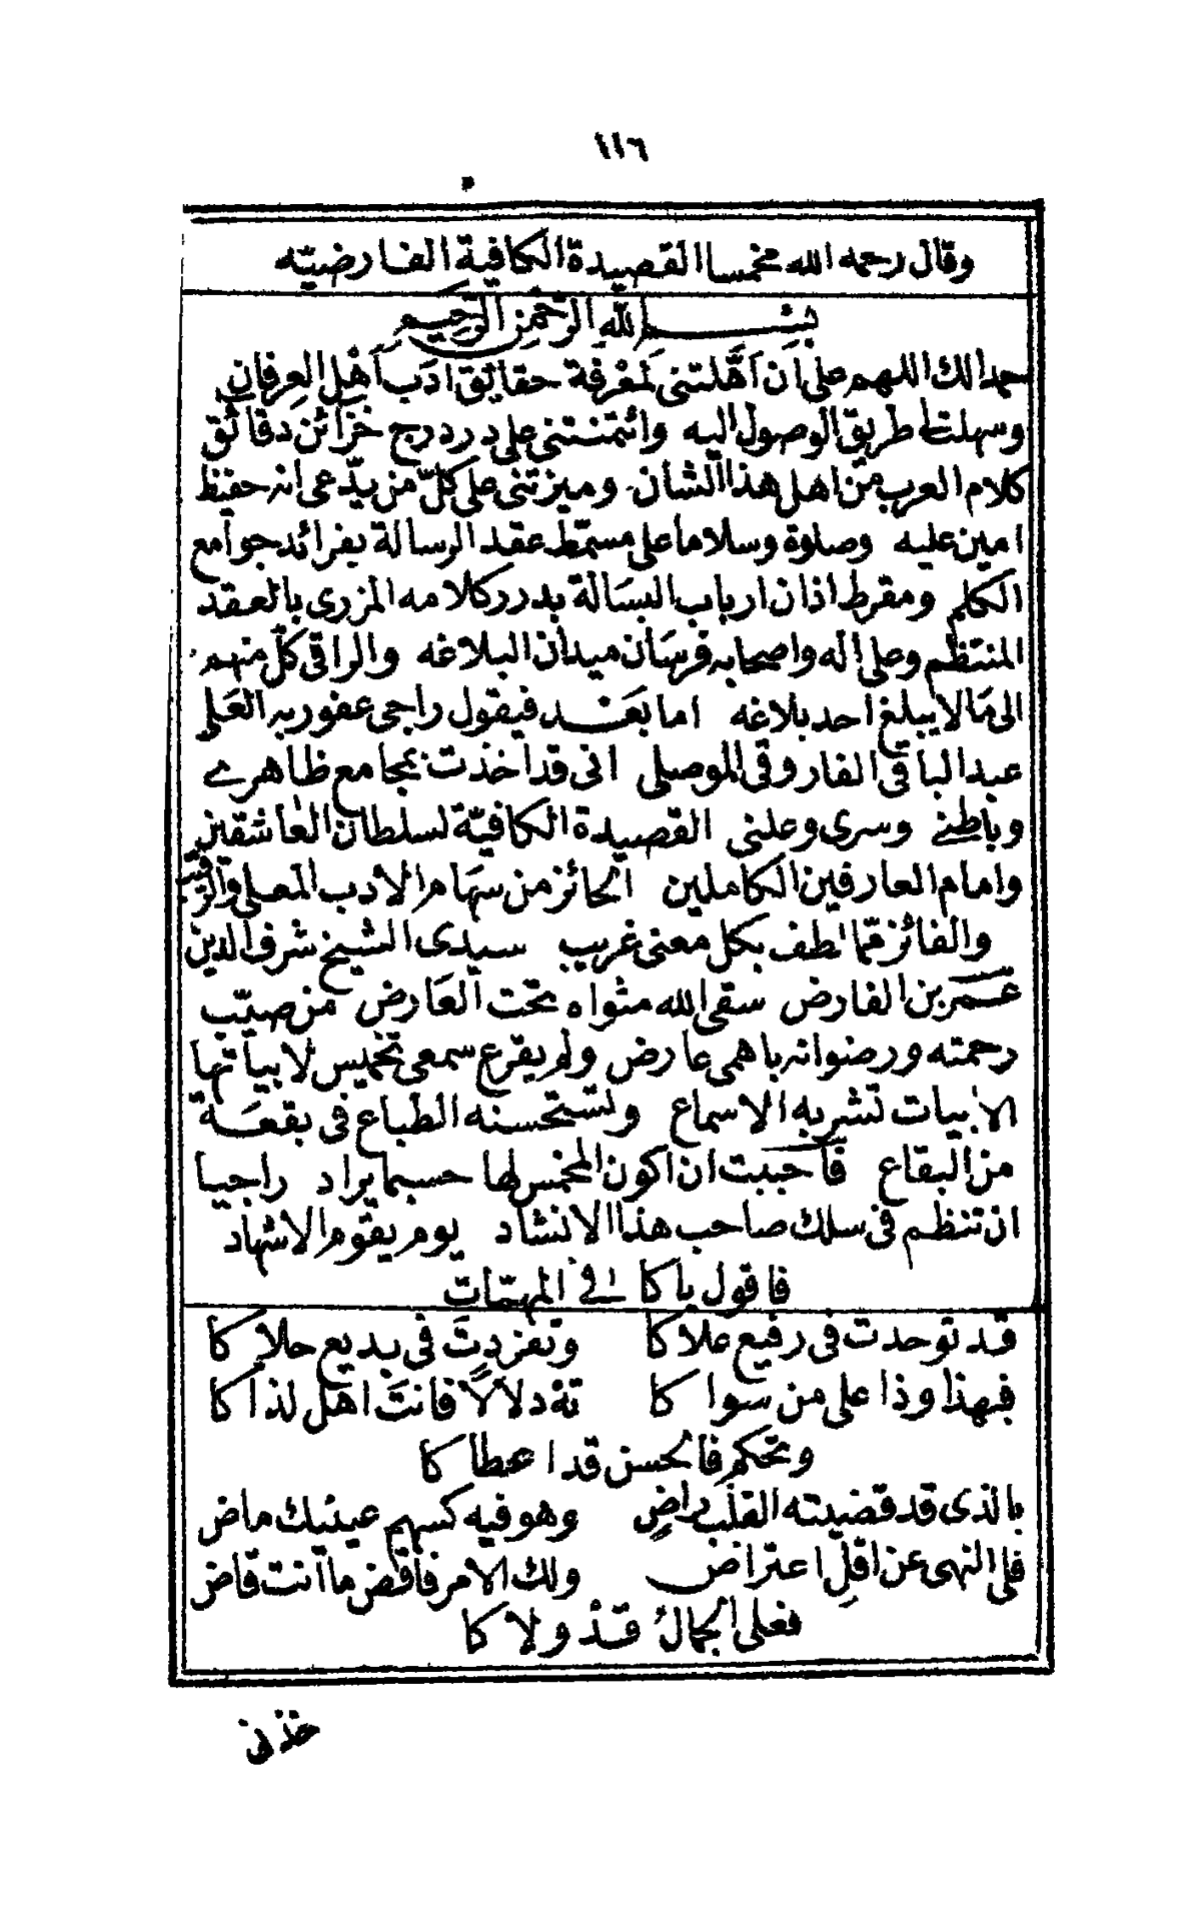 ١١٦
وقال رحمه الله مخمسا القصيدة الكافية الفارضيّه
بسم الله الرحمن الرحيم
حمدا لك اللهم على ان اهّلتنى لمعرفة حقائق ادب اهل العرفان
وسهلت طريق الوصول اليه وائتمنتنى على درر درج خزائن دقائق
كلام العرب من اهل هذا الشان وميزتنى على كلّ من يدّعى انه حفيظ
امين عليه وصلوة وسلاما على مسمّط عقد الرسالة بفرائد جوامع
الكلم ومقرط اذان ارباب البسالة بدرر كلامه المزرى بالعقد
المنتظم وعلى اله واصحابه فرسان ميدان البلاغه والراقى كلّ منهم
الى ما لا يبلغ احد بلاغه اما بعد فيقول راجى عفو ربه العلى
عبد الباقى الفاروقى الموصلى انى قد اخذت بمجامع ظاهرى
وباطنى وسرى وعلنى القصيدة الكافيّة لسلطان العاشقين
وامام العارفين الكاملين الحائز من سهام الادب المعلى والرقيب
والفائز ممّا لطف بكل معنى غريب سيدى الشيخ شرف الدين
عمر بن الفارض سقى الله مثواه تحت العارض من صيّب
رحمته ورضوانه باهمى عارض ولم يقرع سمعى تخميس لابياتها
الابيات تشربه الاسماع وتستحسنه الطباع فى بقعة
من البقاع فاحببت ان اكون المخمس لها حسبما يراد راجيا
ان تنظم فى سلك صاحب هذا الانشاد يوم يقوم الاشهاد
فاقول ياكافى المهمّات
قد توحدت فى رفيع علاكا وتفردت فى بديع حلاكا
فبهذا وذا على من سواكا ته دلالا فانت اهل لذاكا
وتحكم فالحسن قد اعطاكا
بالذى قد قضيته القلب راض وهو فيه كسهم عينيك ماض
فلى النهى عن اقل اعتراض ولك الامر فاقض ما انت قاض
فعلى الجمال قد ولاكا
خذنى